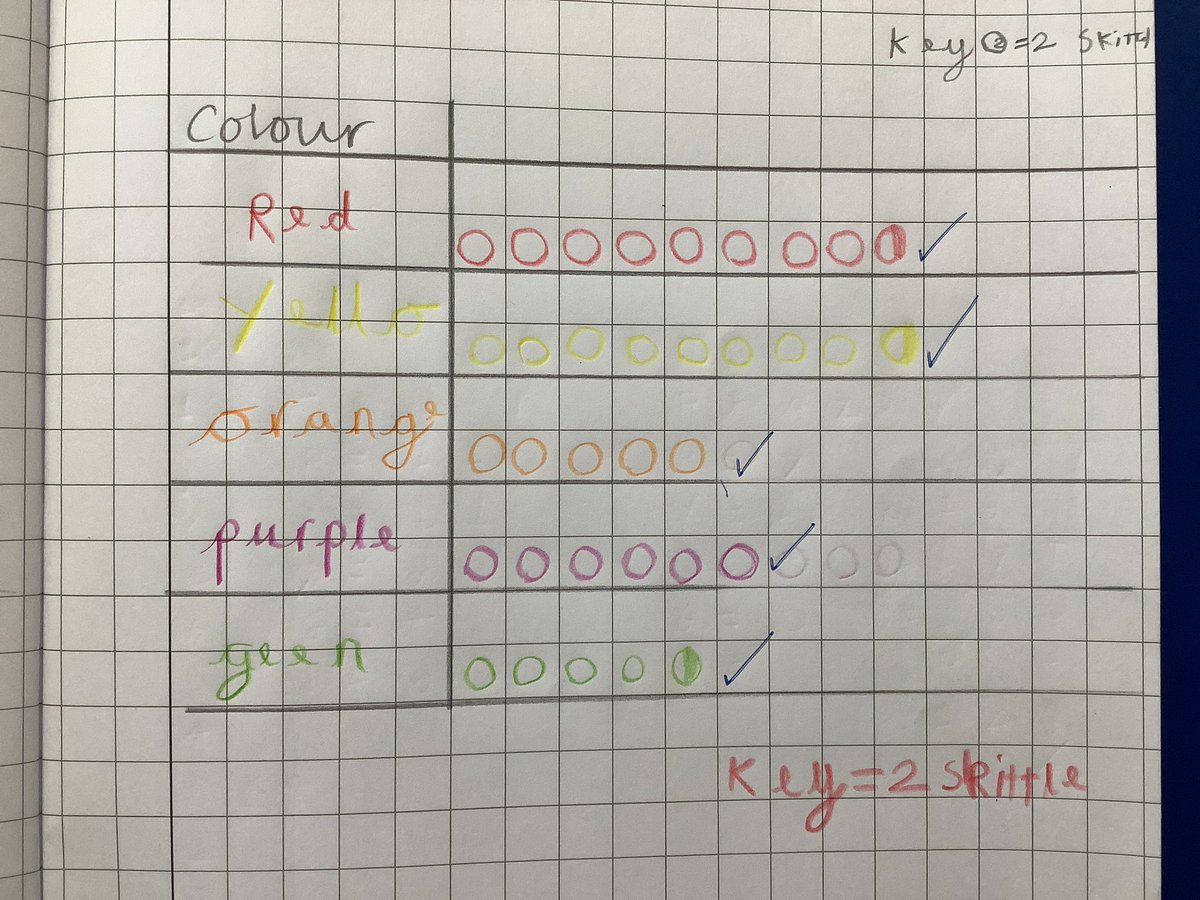 Key 2=2 Skittl
Colour
Red
yello
orange
purple
geen
Key=2 Skittle